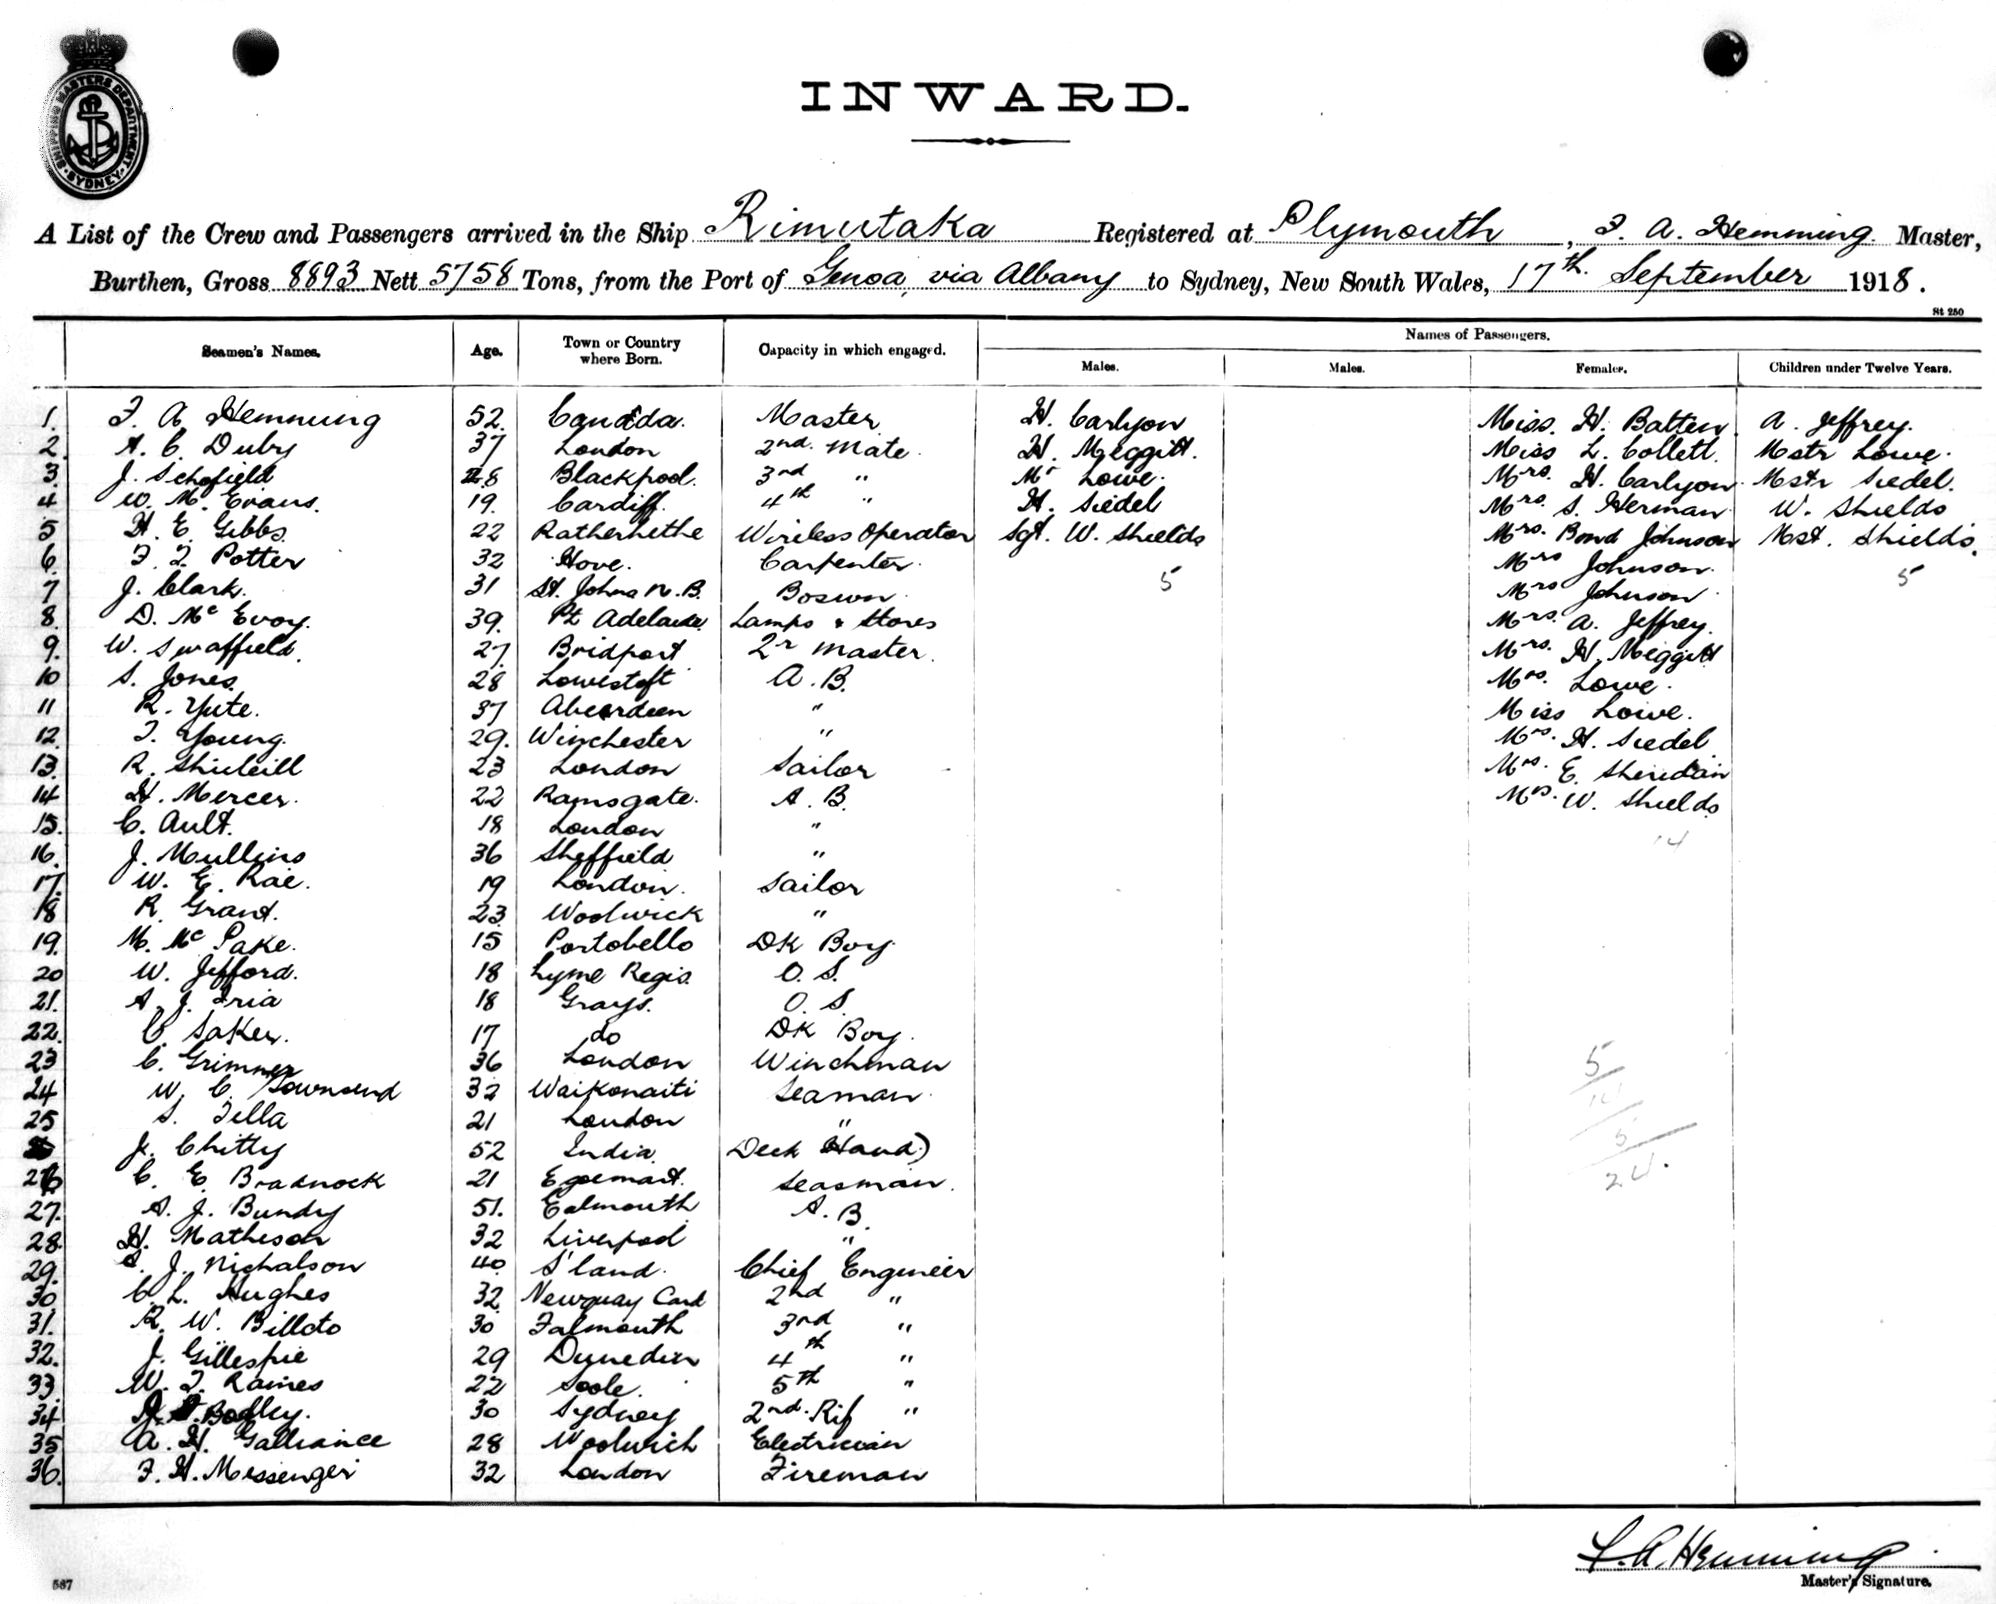 SHIPPING MASTERS DEPARTMENT
SYDNEY
INWARD.
A List of the Crew and Passengers arrived in the Ship Rimutaka Registered at Plymouth, F. A. Hemming Master,
Burthen, Gross 8893 Nett 5758 Tons, from the Port of Genoa, via Albany to Sydney, New South Wales, 17th September 1918.
St 250
Seamen's Names. Age. Town or Country where Born. Capacity in which engaged. Names of Passengers.
Males. Males. Females. Children under Twelve Years.
1. F. A. Hemming 52. Canada. Master H. Carlyon Miss. H. Batten A. Jeffrey.
2. A. C. Duby 37 London 2nd. Mate. H. Meggitt. Miss L. Collett. Mstr Lowe.
3. J. Schofield 28 Blackpool. 3rd " Mr Lowe. Mrs. H. Carlyon Mstr Siedel.
4 W. M. Evans. 19. Cardiff. 4th " H. Siedel Mrs. S. Herman W. Shields
5 H. E. Gibbs. 22 Ratherhethe Wireless Operator Sgt. W. Shields Mrs. Bond Johnson Mst. Shields.
6. F. T. Potter 32 Hove. Carpenter. 5 Mrs Johnson. 5
7 J. Clark. 31 St. Johns N. B. Boswn. Mrs Johnson
8. D. Mc Evoy. 39. Pt Adelaide. Lamps & Stores Mrs. A. Jeffrey.
9. W. Swaffield. 27 Bridport 2r Master. Mrs. H. Meggitt
10 S. Jones. 28 Lowestoft A. B. Mrs. Lowe.
11 R. Yute. 37 Aberdeen " Miss Lowe.
12. T. Young. 29. Winchester " Mrs. H. Siedel
13. R. 23 London Sailor Mrs. E. Sheridan
14 H. Mercer. 22 Ramsgate. A. B. Mrs. W. Shields
15. C. Ault. 18 London " 14
16. J. Mullins 36 Sheffield "
17. W. E. Rae. 19 London. Sailor
18 R. Grant. 23 Woolwick "
19. M. Mc Pake. 15 Portobello DK Boy.
20 W. Jefford. 18 Lyme Regis. O. S.
21. A. J. Iria 18 Grays. O. S.
22. C. Saker. 17 do DK Boy.
23 C. Grimmer 36 London Winchman 5
24 W. C. Townsend 32 Waikonaiti Seaman. 14
25 S. Tella 21 London " 5
J. Chitty 52 India. Deck Hand) 24.
26 C. E. Bradnock 21 Egremont. Seasman.
27. A. J. Bundy 51. Ealmouth A. B.
28. H. Matheson 32 Liverpool "
29. J. Nichalson 40 S'land. Chief Engineer
30 C. L. Hughes 32 Newquay Card 2nd "
31. R. W. 30 Falmouth 3rd "
32. J. Gillespie 29 Dunedin 4th "
33. W. T. Raines 22 5th "
34 Bodley. 30 Sydney 2nd. Rif "
35 A. H. Galliance 28 Woolwich Electrician
36. F. H. Messenger 32 London Fireman
F. A. Hemming
Master's Signature.
587